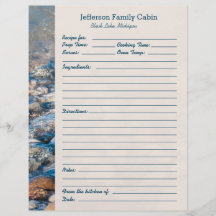 Jefferson Family Cabin
Black Lake, Michigan
Recipe for:
Prep Time: Cooking Time:
Serves: Oven Temp:
Ingredients:
Directions:
Notes:
From the kitchen of:
Date: